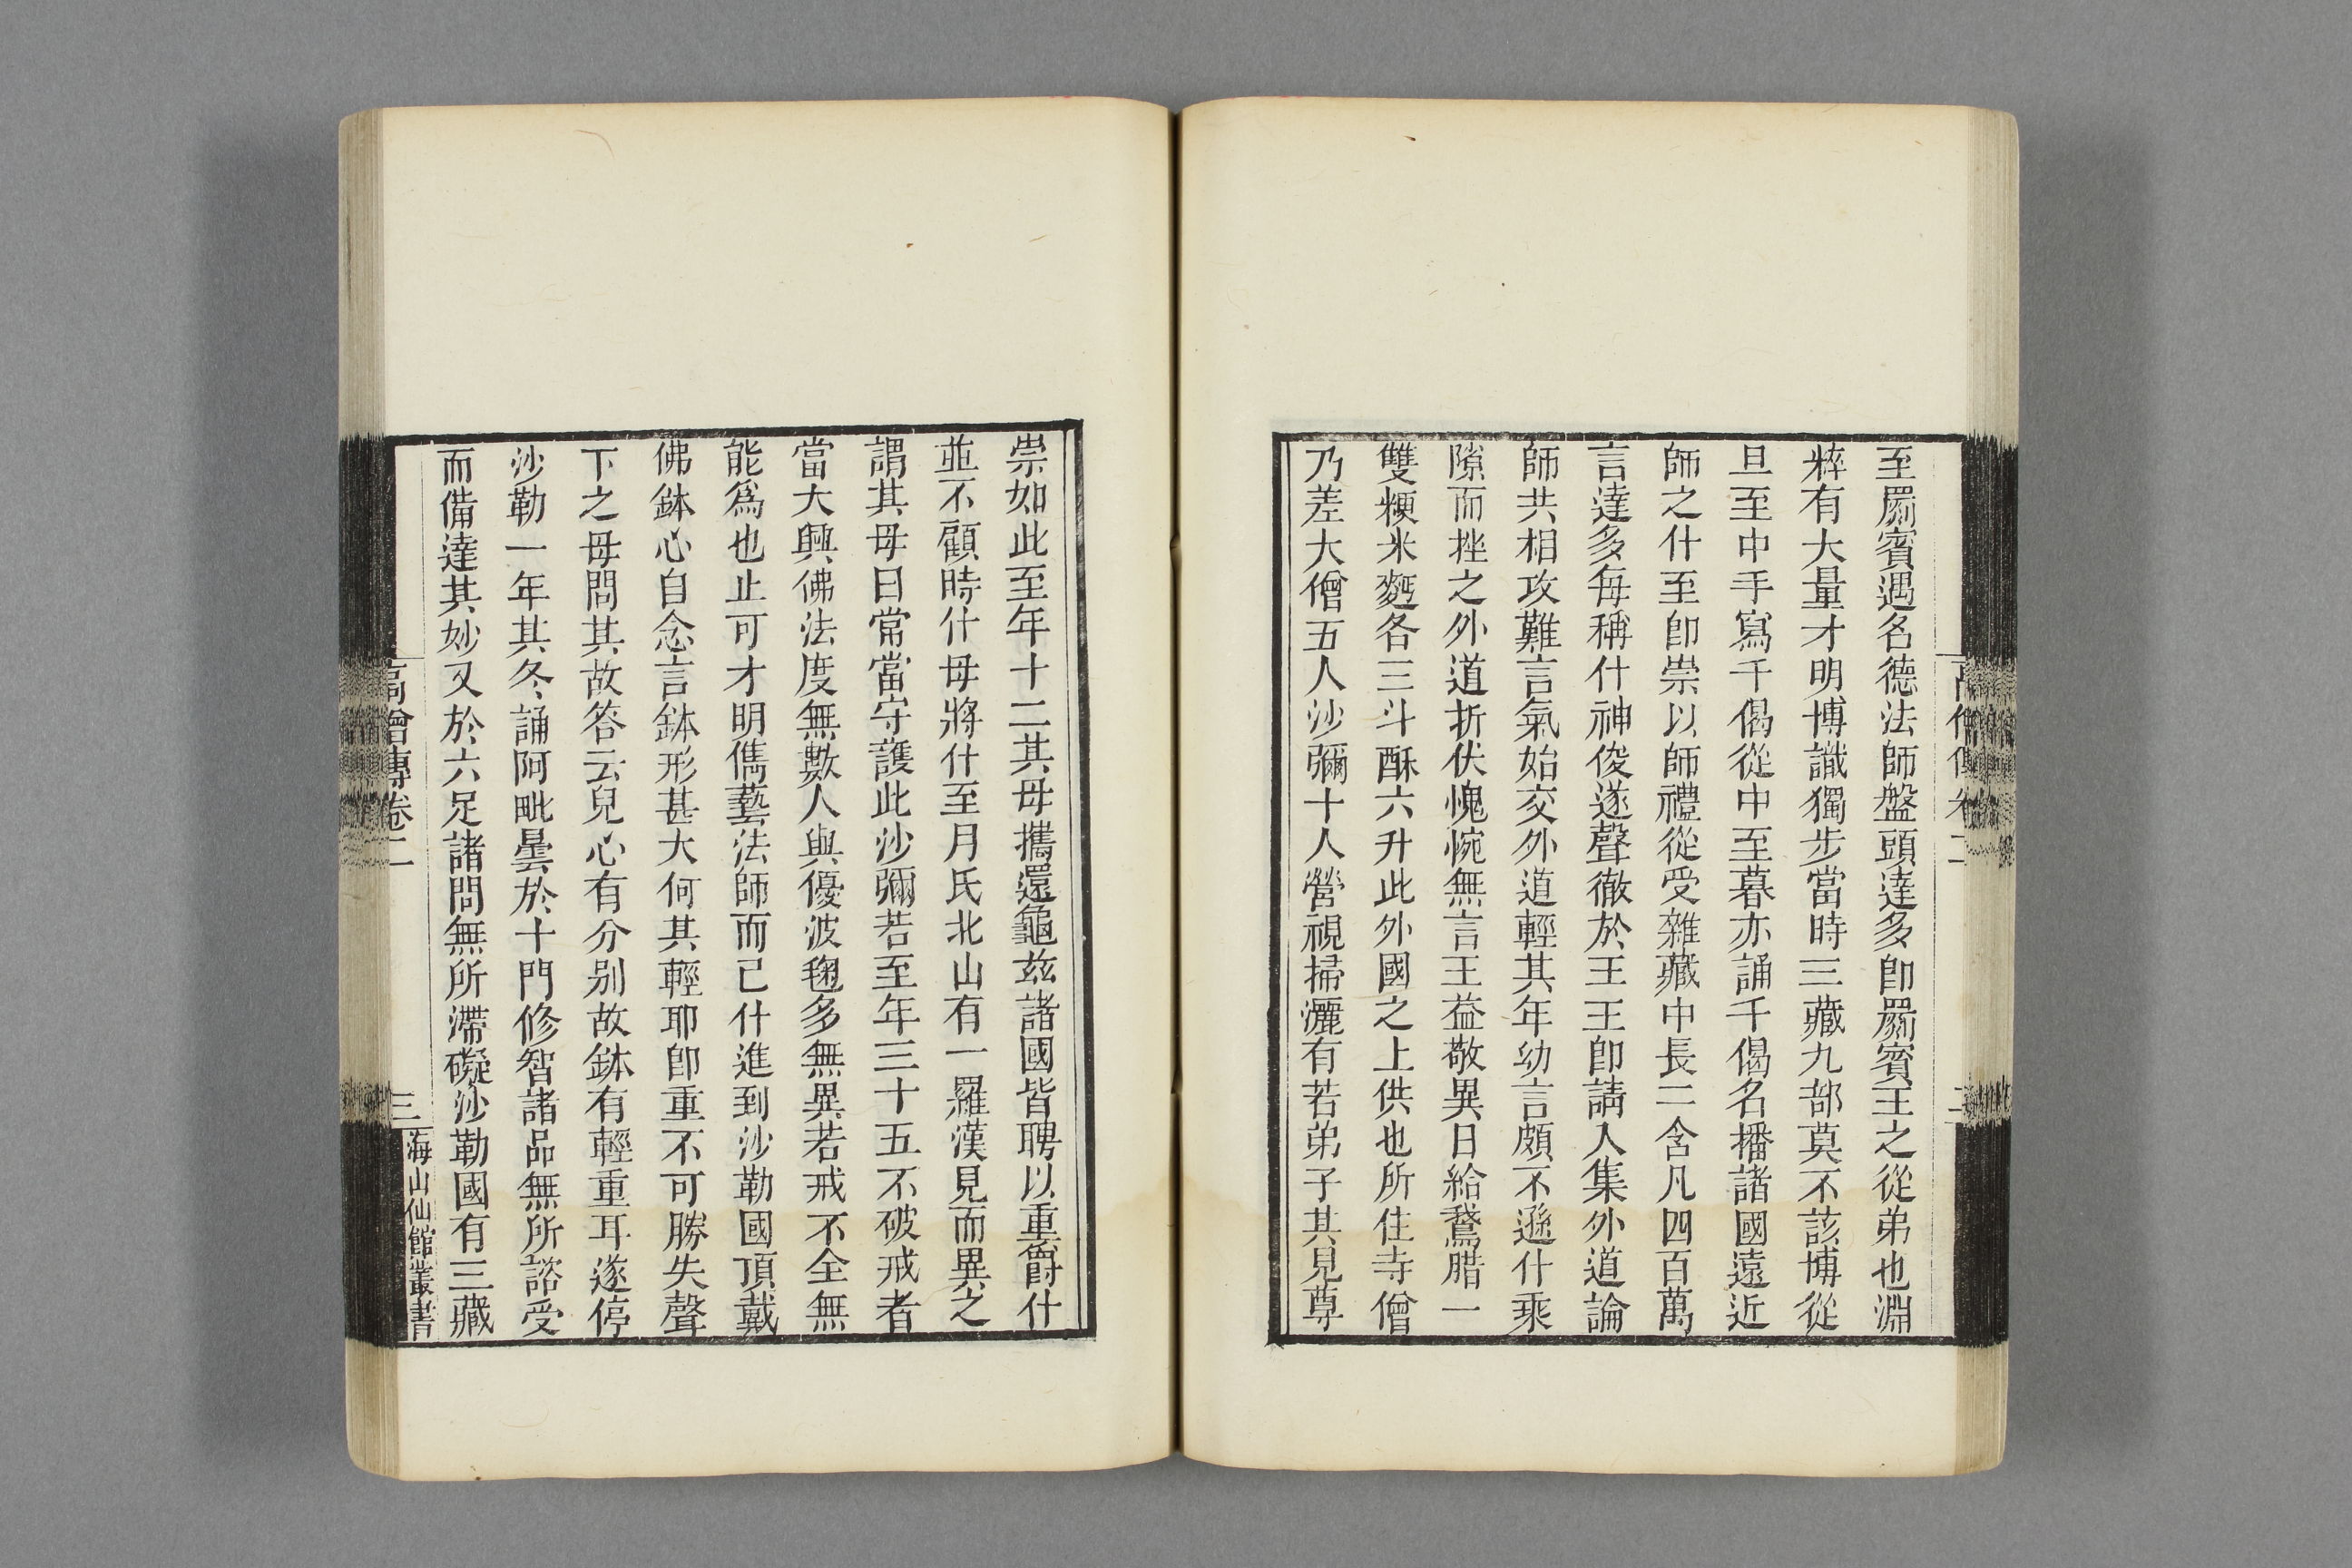 至罽賓遇名德法師盤頭達多卽罽賓王之從弟也淵
粹有大量才明博識獨步當時三藏九部莫不該博從
旦至中手寫千偈從中至暮亦誦千偈名播諸國遠近
師之什至卽崇以師禮從受雜藏中長二含凡四百萬
言達多每稱什神俊遂聲徹於王王卽請人集外道論
師共相攻難言氣始交外道輕其年幼言頗不遜什乘
隙而挫之外道折伏愧惋無言王益敬異日給鵞腊一
雙粳米麪各三斗酥六升此外國之上供也所住寺僧
乃差大僧五人沙彌十人營視掃灑有若弟子其見尊
崇如此至年十二其母攜還龜兹諸國皆聘以重爵什
並不顧時什母將什至月氏北山有一羅漢見而異之
謂其母曰常當守護此沙彌若至年三十五不破戒者
當大興佛法度無數人與優波毱多無異若戒不全無
能爲也止可才明儁藝法師而已什進到沙勒國頂戴
佛鉢心自念言鉢形甚大何其輕耶卽重不可勝失聲
下之母問其故答云兒心有分别故鉢有輕重耳遂停
沙勒一年其冬誦阿毗曇於十門修智諸品無所諮受
而備達其妙又於六足諸問無所滯礙沙勒國有三藏
高僧傳卷二
三
海山仙館叢書